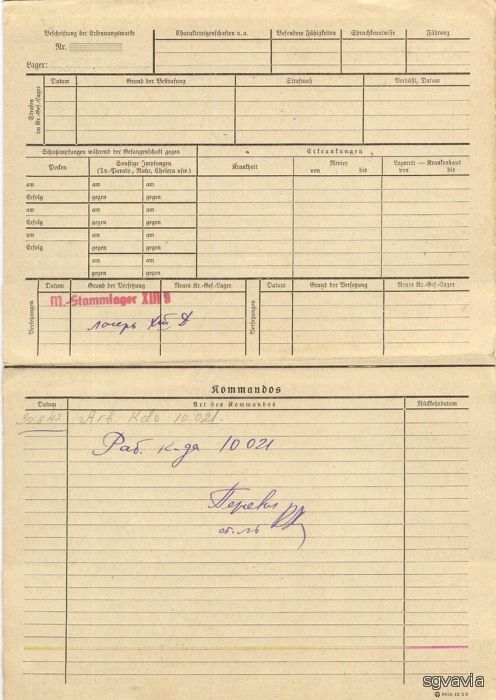 Beschriftung der Erkennungsmarke
Nr.
Lager:
Charaktereigenschaften u. a.
Besondere Fähigkeiten
Sprachkenntnisse
Führung
Strafen im Kr.-Gef.-Lager
Datum
Grund der Bestrafung
Strafmaß
Verbüßt, Datum
Schutzimpfungen während der Gefangenschaft gegen
Erkrankungen
Pocken
Sonstige Impfungen
(Ty.-Paraty., Ruhr, Cholera usw.)
Krankheit
Revier
von bis
Lazarett — Krankenhaus
von bis
am am am
Erfolg gegen gegen
am am am
Erfolg gegen gegen
am am am
Erfolg gegen gegen
am am
gegen gegen
Versetzungen
Datum
Grund der Versetzung
Neues Kr.-Gef.-Lager
Versetzungen
Datum
Grund der Versetzung
Neues Kr.-Gef.-Lager
M.-Stammlager XIII B
лагерь XIII Д
Kommandos
Datum
Art des Kommandos
Rückkehrdatum
30.8.43 Arb Kdo 10021.
Раб. к-да 10021
Перевел
sgvavia